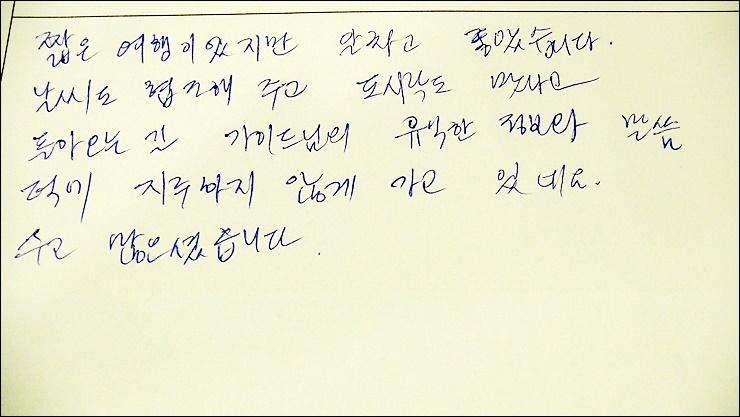 짧은 여행이었지만 알차고 좋았습니다.
날씨도 협조해 주고 도시락도 맛나고
돌아오는 길 가이드님의 유익한 정보와 말씀
덕에 지루하지 않게 가고 있네요.
수고 많으셨습니다.